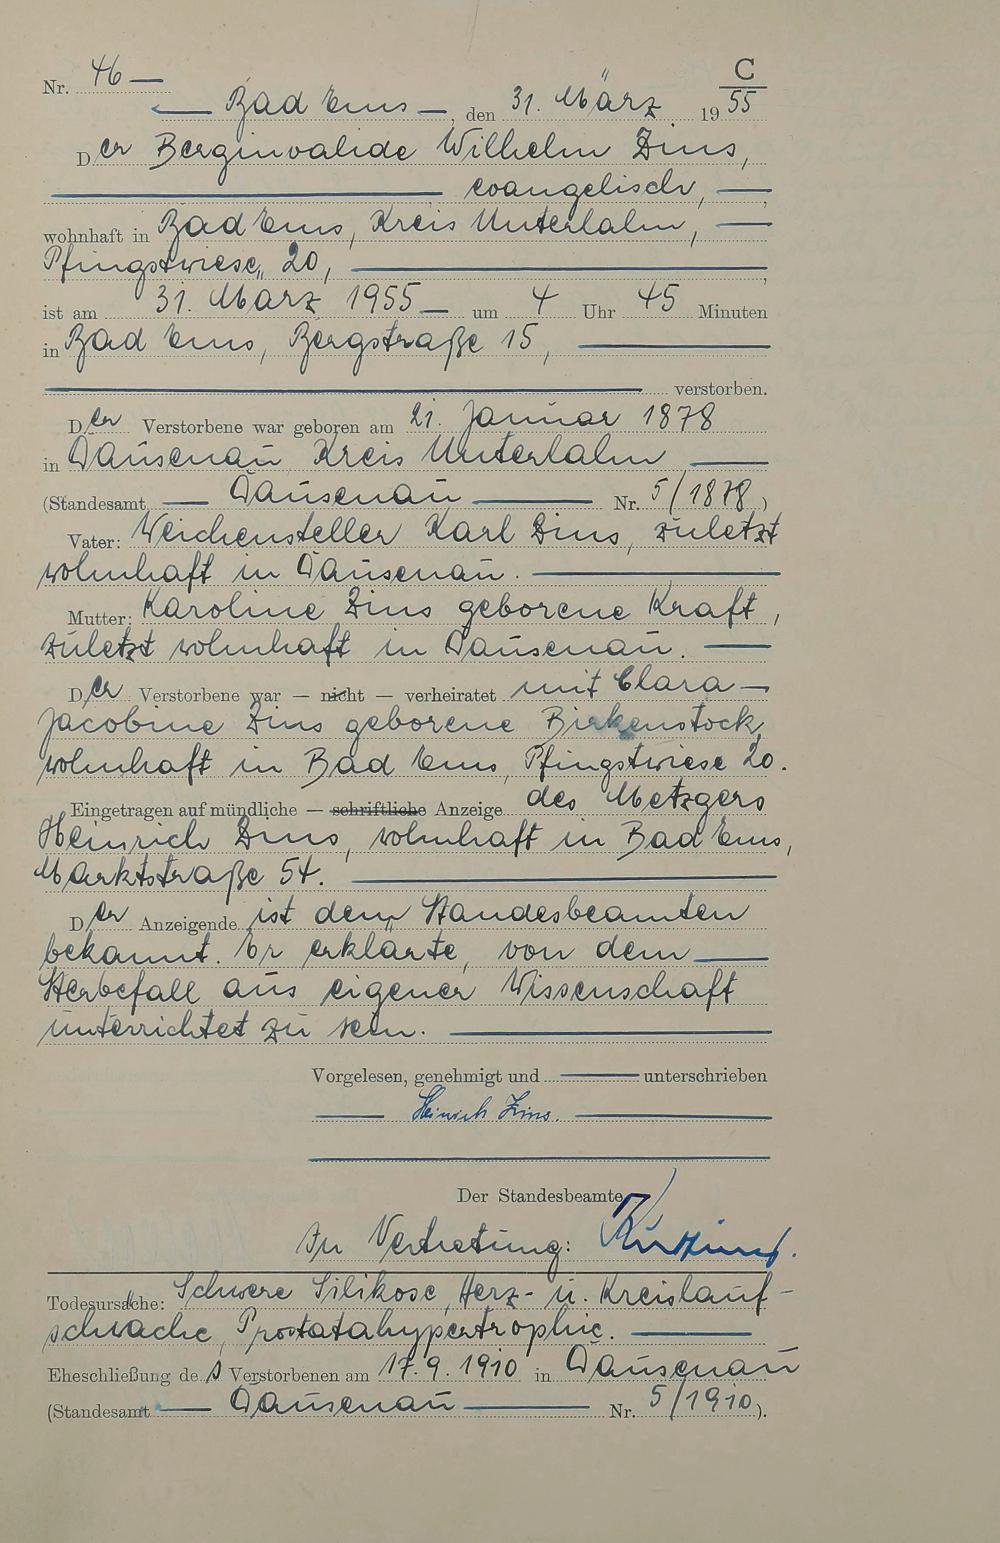 Nr. 46 — C
— Bad Ems —, den 31. März 1955
Der Berginvalide Wilhelm Zins,
— evangelisch, —
wohnhaft in Bad Ems, Kreis Unterlahn, —
Pfingstwiese 20, —
ist am 31. März 1955 — um 4 Uhr 45 Minuten
in Bad Ems, Bergstraße 15, —
— verstorben.
Der Verstorbene war geboren am 21. Januar 1878
in Dausenau Kreis Unterlahn —
(Standesamt — Dausenau — Nr. 5/1878)
Vater: Weichensteller Karl Zins, zuletzt
wohnhaft in Dausenau. —
Mutter: Karoline Zins geborene Kraft,
zuletzt wohnhaft in Dausenau. —
Der Verstorbene war — nicht — verheiratet mit Clara —
Jacobine Zins geborene Birkenstock,
wohnhaft in Bad Ems, Pfingstwiese 20.
Eingetragen auf mündliche — schriftliche Anzeige des Metzgers
Heinrich Zins, wohnhaft in Bad Ems,
Marktstraße 54. —
Der Anzeigende ist dem Standesbeamten
bekannt. Er erklärte, von dem —
Sterbefall aus eigener Wissenschaft
unterrichtet zu sein. —
Vorgelesen, genehmigt und — unterschrieben
— Heinrich Zins. —
Der Standesbeamte
In Vertretung:
Todesursache: Schwere Silikose, Herz- u. Kreislauf-
schwäche, Prostatahypertrophie. —
Eheschließung des Verstorbenen am 17.9.1910 in Dausenau
(Standesamt — Dausenau — Nr. 5/1910).